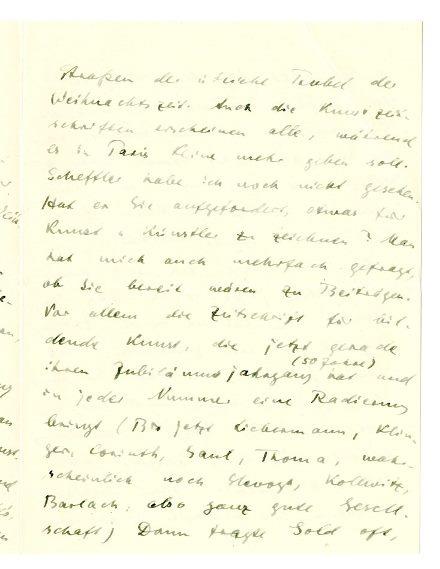 Straßen der übliche Trubel der
Weihnachtszeit. Auch die Kunstzeit-
schriften erscheinen alle, während
es in Paris keine mehr geben soll.
Scheffler habe ich noch nicht gesehen.
Hat er Sie aufgefordert, etwas für
Kunst u. Künstler zu zeichnen? Man
hat mich auch mehrfach gefragt,
ob Sie bereit wären zu Beiträgen.
Vor allem die Zeitschrift für bil-
dende Kunst, die jetzt gerade
(50 Jahre)
ihren Jubiläumsjahrgang hat und
in jeder Nummer eine Radierung
bringt (Bis jetzt Liebermann, Klin-
ger, Corinth, Gaul, Thoma, wahr-
scheinlich noch Slevogt, Kollwitz,
Barlach, also ganz gute Gesell-
schaft) Dann fragte Gold oft,